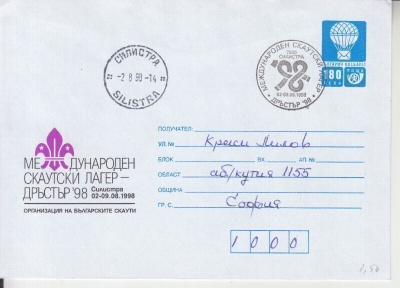 СИЛИСТРА
- 2.8.98-14
SILISTRA
МЕЖДУНАРОДЕН СКАУТСКИ ЛАГЕР
7500
СИЛИСТРА
02-09.08.1998
ДРЪСТЪР '98
180
ПОЩА
МЕЖДУНАРОДЕН
СКАУТСКИ ЛАГЕР –
ДРЪСТЪР '98 Силистра
02-09.08.1998
ОРГАНИЗАЦИЯ НА БЪЛГАРСКИТЕ СКАУТИ
ПОЛУЧАТЕЛ:
УЛ. № Краси Лилов
БЛОК ВХ. АП. №
ОБЛАСТ аб/кутия 1155
ОБЩИНА
ГР. С. София
1000